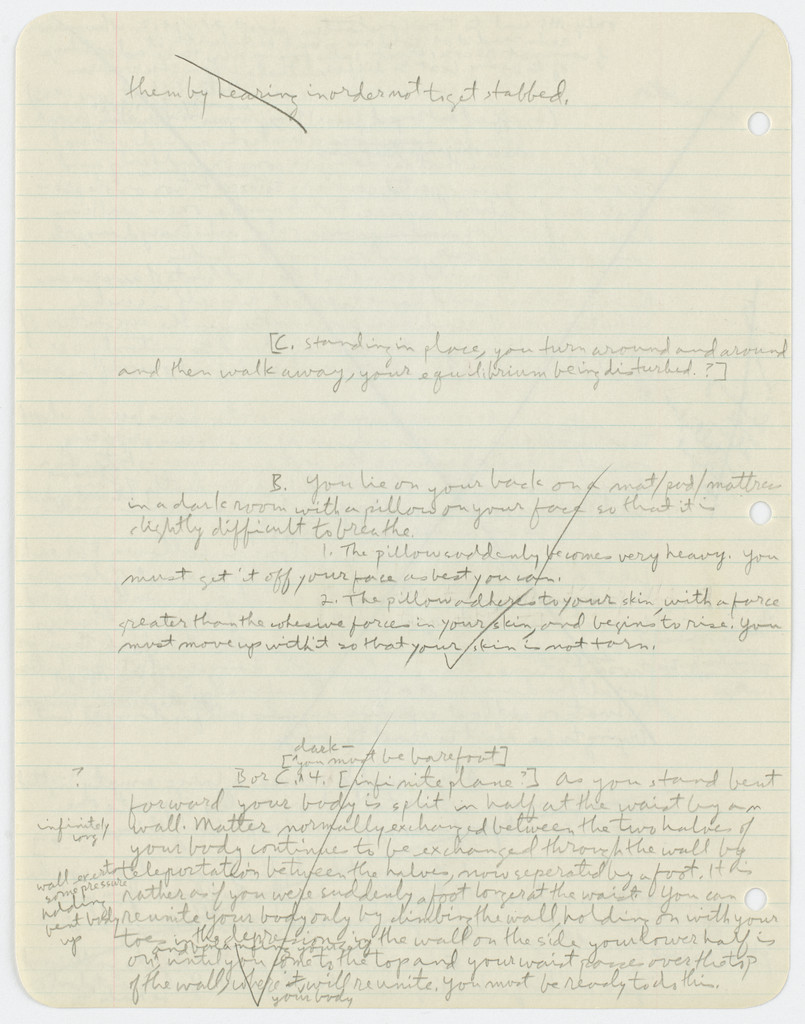 them by hearing in order not to get stabbed.
[C. standing in place, you turn around and around
and then walk away, your equilibrium being disturbed. ?]
B. You lie on your back on a mat/pad/mattress
in a dark room with a pillow on your face so that it is
slightly difficult to breathe.
1. The pillow suddenly becomes very heavy. You
must get it off your face as best you can.
2. The pillow adheres to your skin, with a force
greater than the cohesive forces in your skin, and begins to rise. You
must move up with it so that your skin is not torn.
dark—
[you must be barefoot]
?
B or C. 4. [infinite plane?] As you stand bent
forward your body is split in half at the waist by an
infinitely
long
wall. Matter normally exchanged between the two halves of
your body continues to be exchanged through the wall by
teleportation between the halves, now seperated by a foot. It is
wall exerts
some pressure
holding
bent body
up
rather as if you were suddenly a foot longer at the waist. You can
reunite your body only by climbing the wall, holding on with your
toes in the depressions in the wall on the side your lower half is
on, until you come to the top and your waist passes over the top
of the wall, where it will reunite. You must be ready to do this.
your body